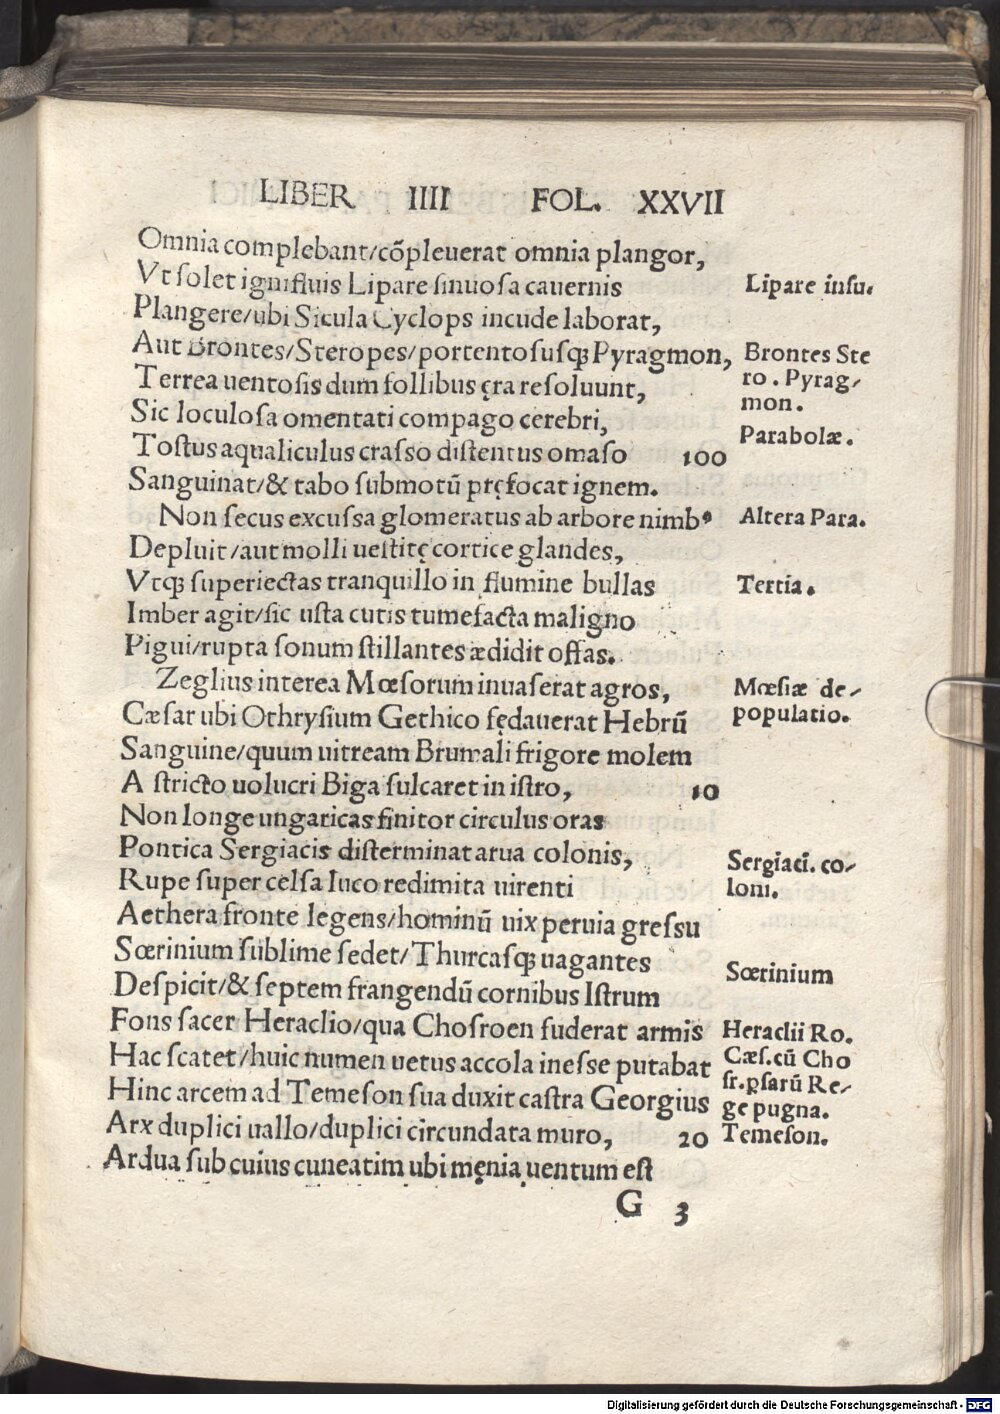 LIBER IIII FOL. XXVII
Omnia complebant/cõpleuerat omnia plangor,
Vt solet ignifluis Lipare sinuosa cauernis
Lipare insu.
Plangere/ubi Sicula Cyclops incude laborat,
Aut Brontes/Steropes/portentosusqꝫ Pyragmon,
Brontes Ste
Terrea uentosis dum follibus ęra resoluunt,
ro. Pyrag-
mon.
Sic loculosa omentati compago cerebri,
Parabolæ.
Tostus aqualiculus crasso distentus omaso 100
Sanguinat/& tabo submotũ pręfocat ignem.
Non secus excussa glomeratus ab arbore nimbꝰ
Altera Para.
Depluit/aut molli uestitę cortice glandes,
Vtqꝫ superiectas tranquillo in flumine bullas
Tertia.
Imber agit/sic usta cutis tumefacta maligno
Pigui/rupta sonum stillantes ædidit offas.
Zeglius interea Mœsorum inuaserat agros,
Mœsiæ de-
populatio.
Cæsar ubi Othrysium Gethico fędauerat Hebrũ
Sanguine/quum uitream Brumali frigore molem
A stricto uolucri Biga sulcaret in istro, 10
Non longe ungaricas finitor circulus oras
Pontica Sergiacis disterminat arua colonis,
Sergiaci. co-
loni.
Rupe super celsa luco redimita uirenti
Aethera fronte legens/hominũ uix peruia gressu
Sœrinium sublime sedet/Thurcasqꝫ uagantes
Sœrinium
Despicit/& septem frangendũ cornibus Istrum
Fons sacer Heraclio/qua Chosroen fuderat armis
Heraclii Ro.
Hac scatet/huic numen uetus accola inesse putabat
Cæs.cũ Cho
Hinc arcem ad Temeson sua duxit castra Georgius
sr.ꝑsarũ Re-
ge pugna.
Arx duplici uallo/duplici circundata muro, 20
Temeson.
Ardua sub cuius cuneatim ubi męnia uentum est
G 3
Digitalisierung gefördert durch die Deutsche Forschungsgemeinschaft - DFG